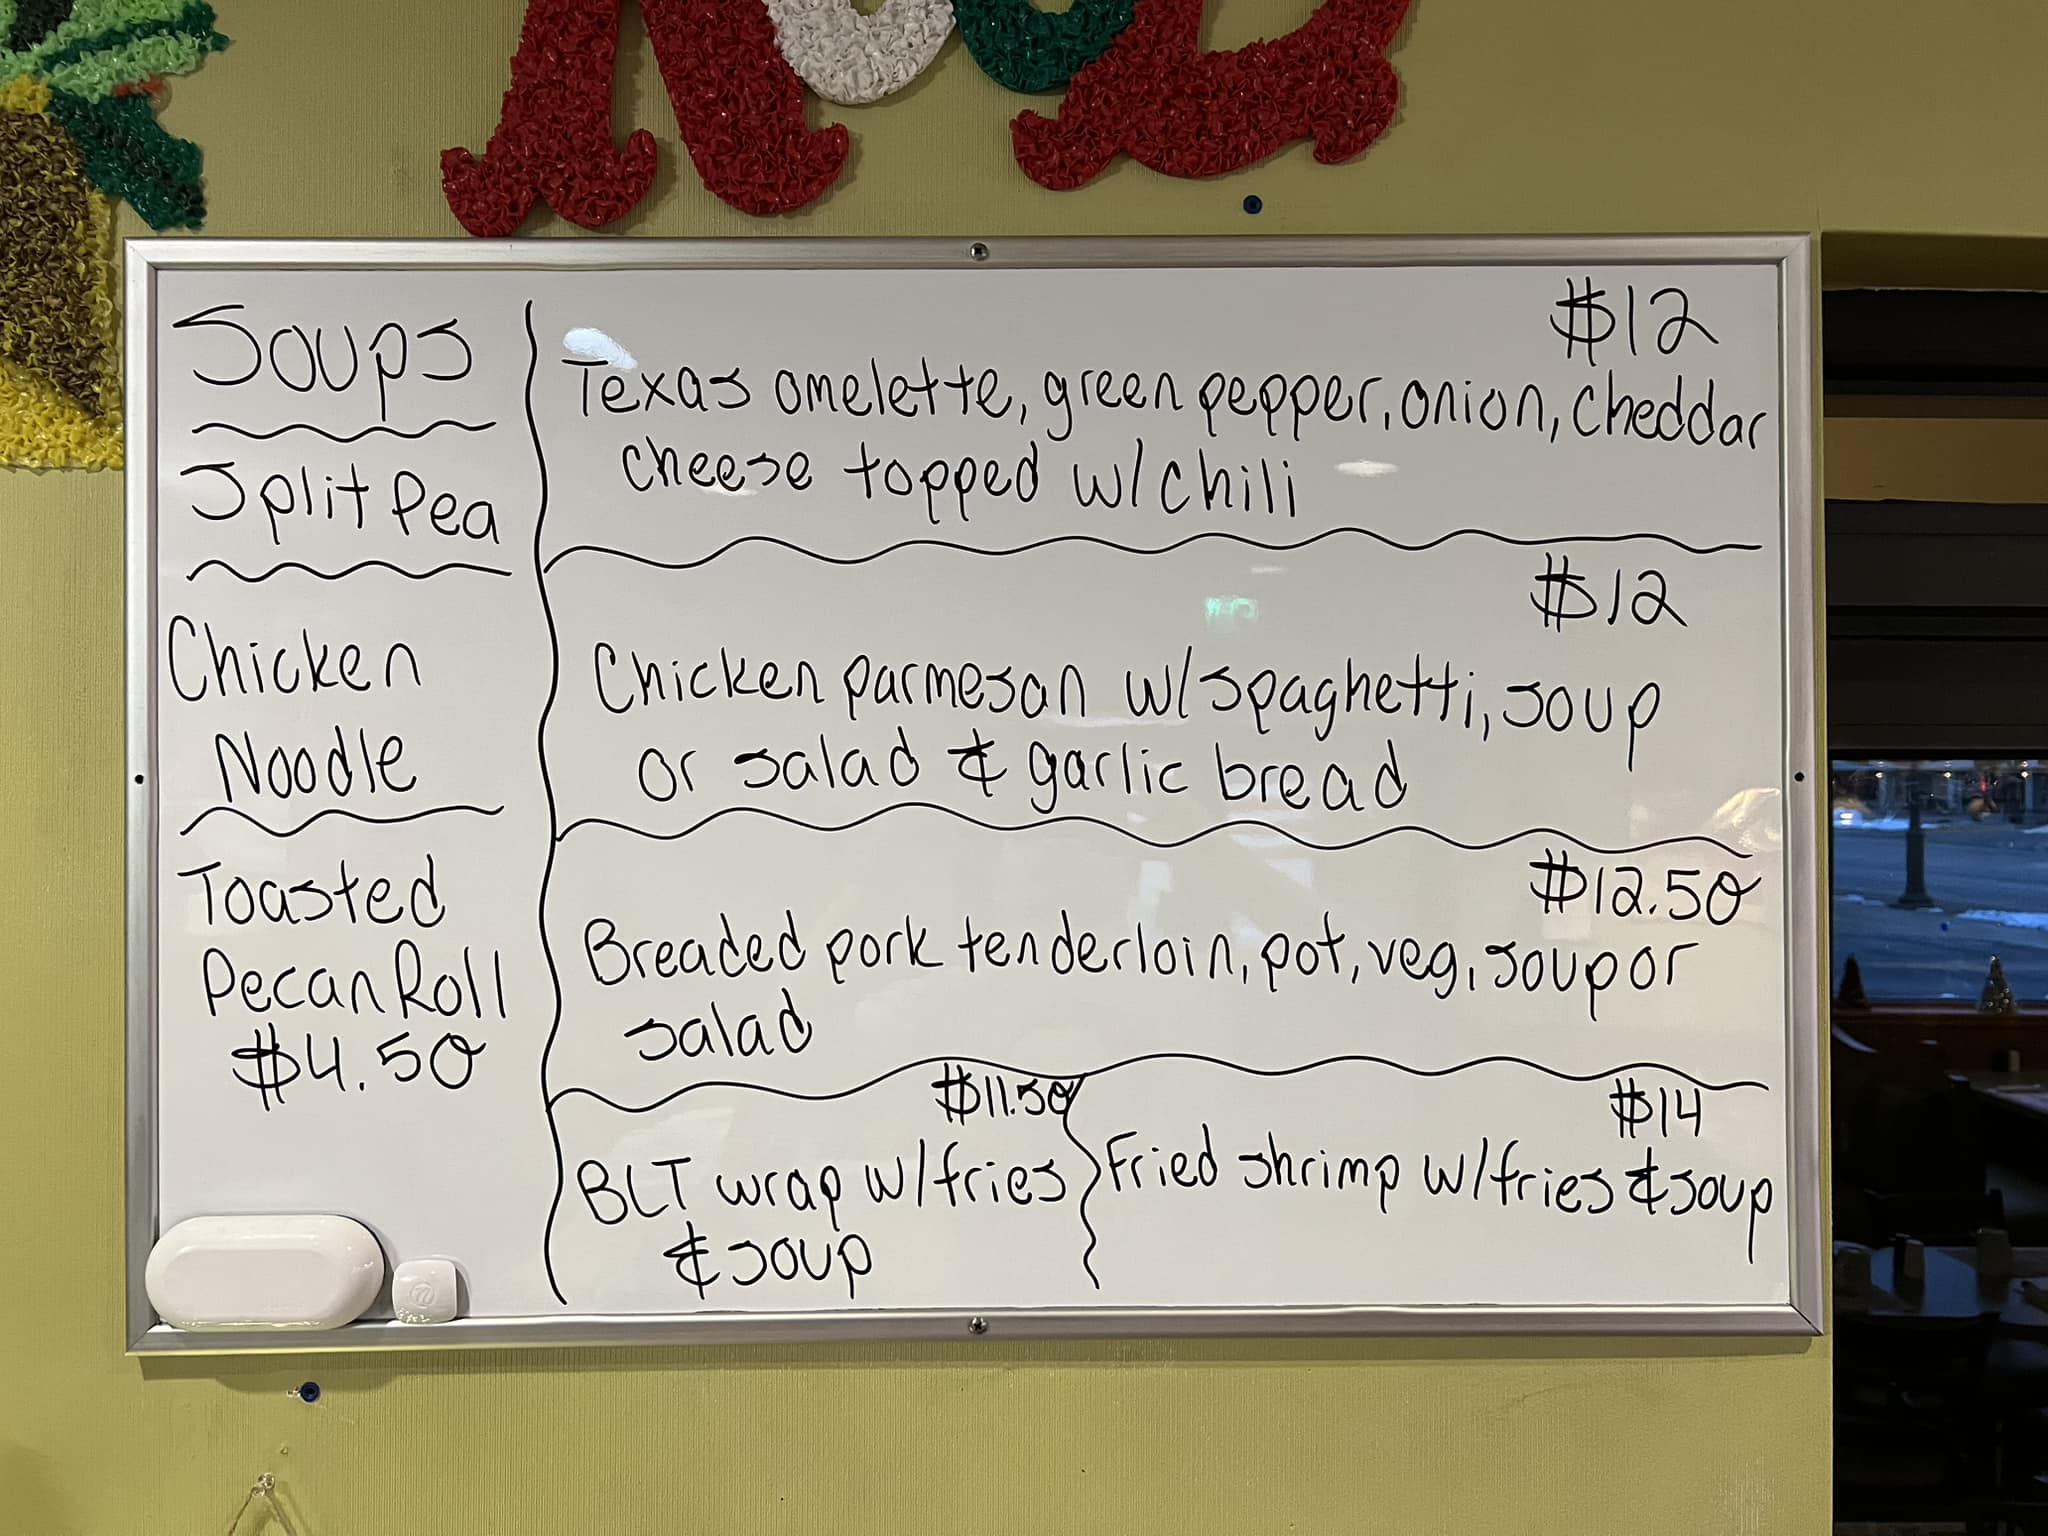 Soups
Split Pea
Chicken
Noodle
Toasted
Pecan Roll
$4.50
$12
Texas omelette, green pepper, onion, cheddar
cheese topped w/chili
$12
Chicken parmesan w/spaghetti, soup
or salad & garlic bread
$12.50
Breaded pork tenderloin, pot, veg, soup or
salad
$11.50
BLT wrap w/fries
& soup
$14
Fried shrimp w/fries & soup